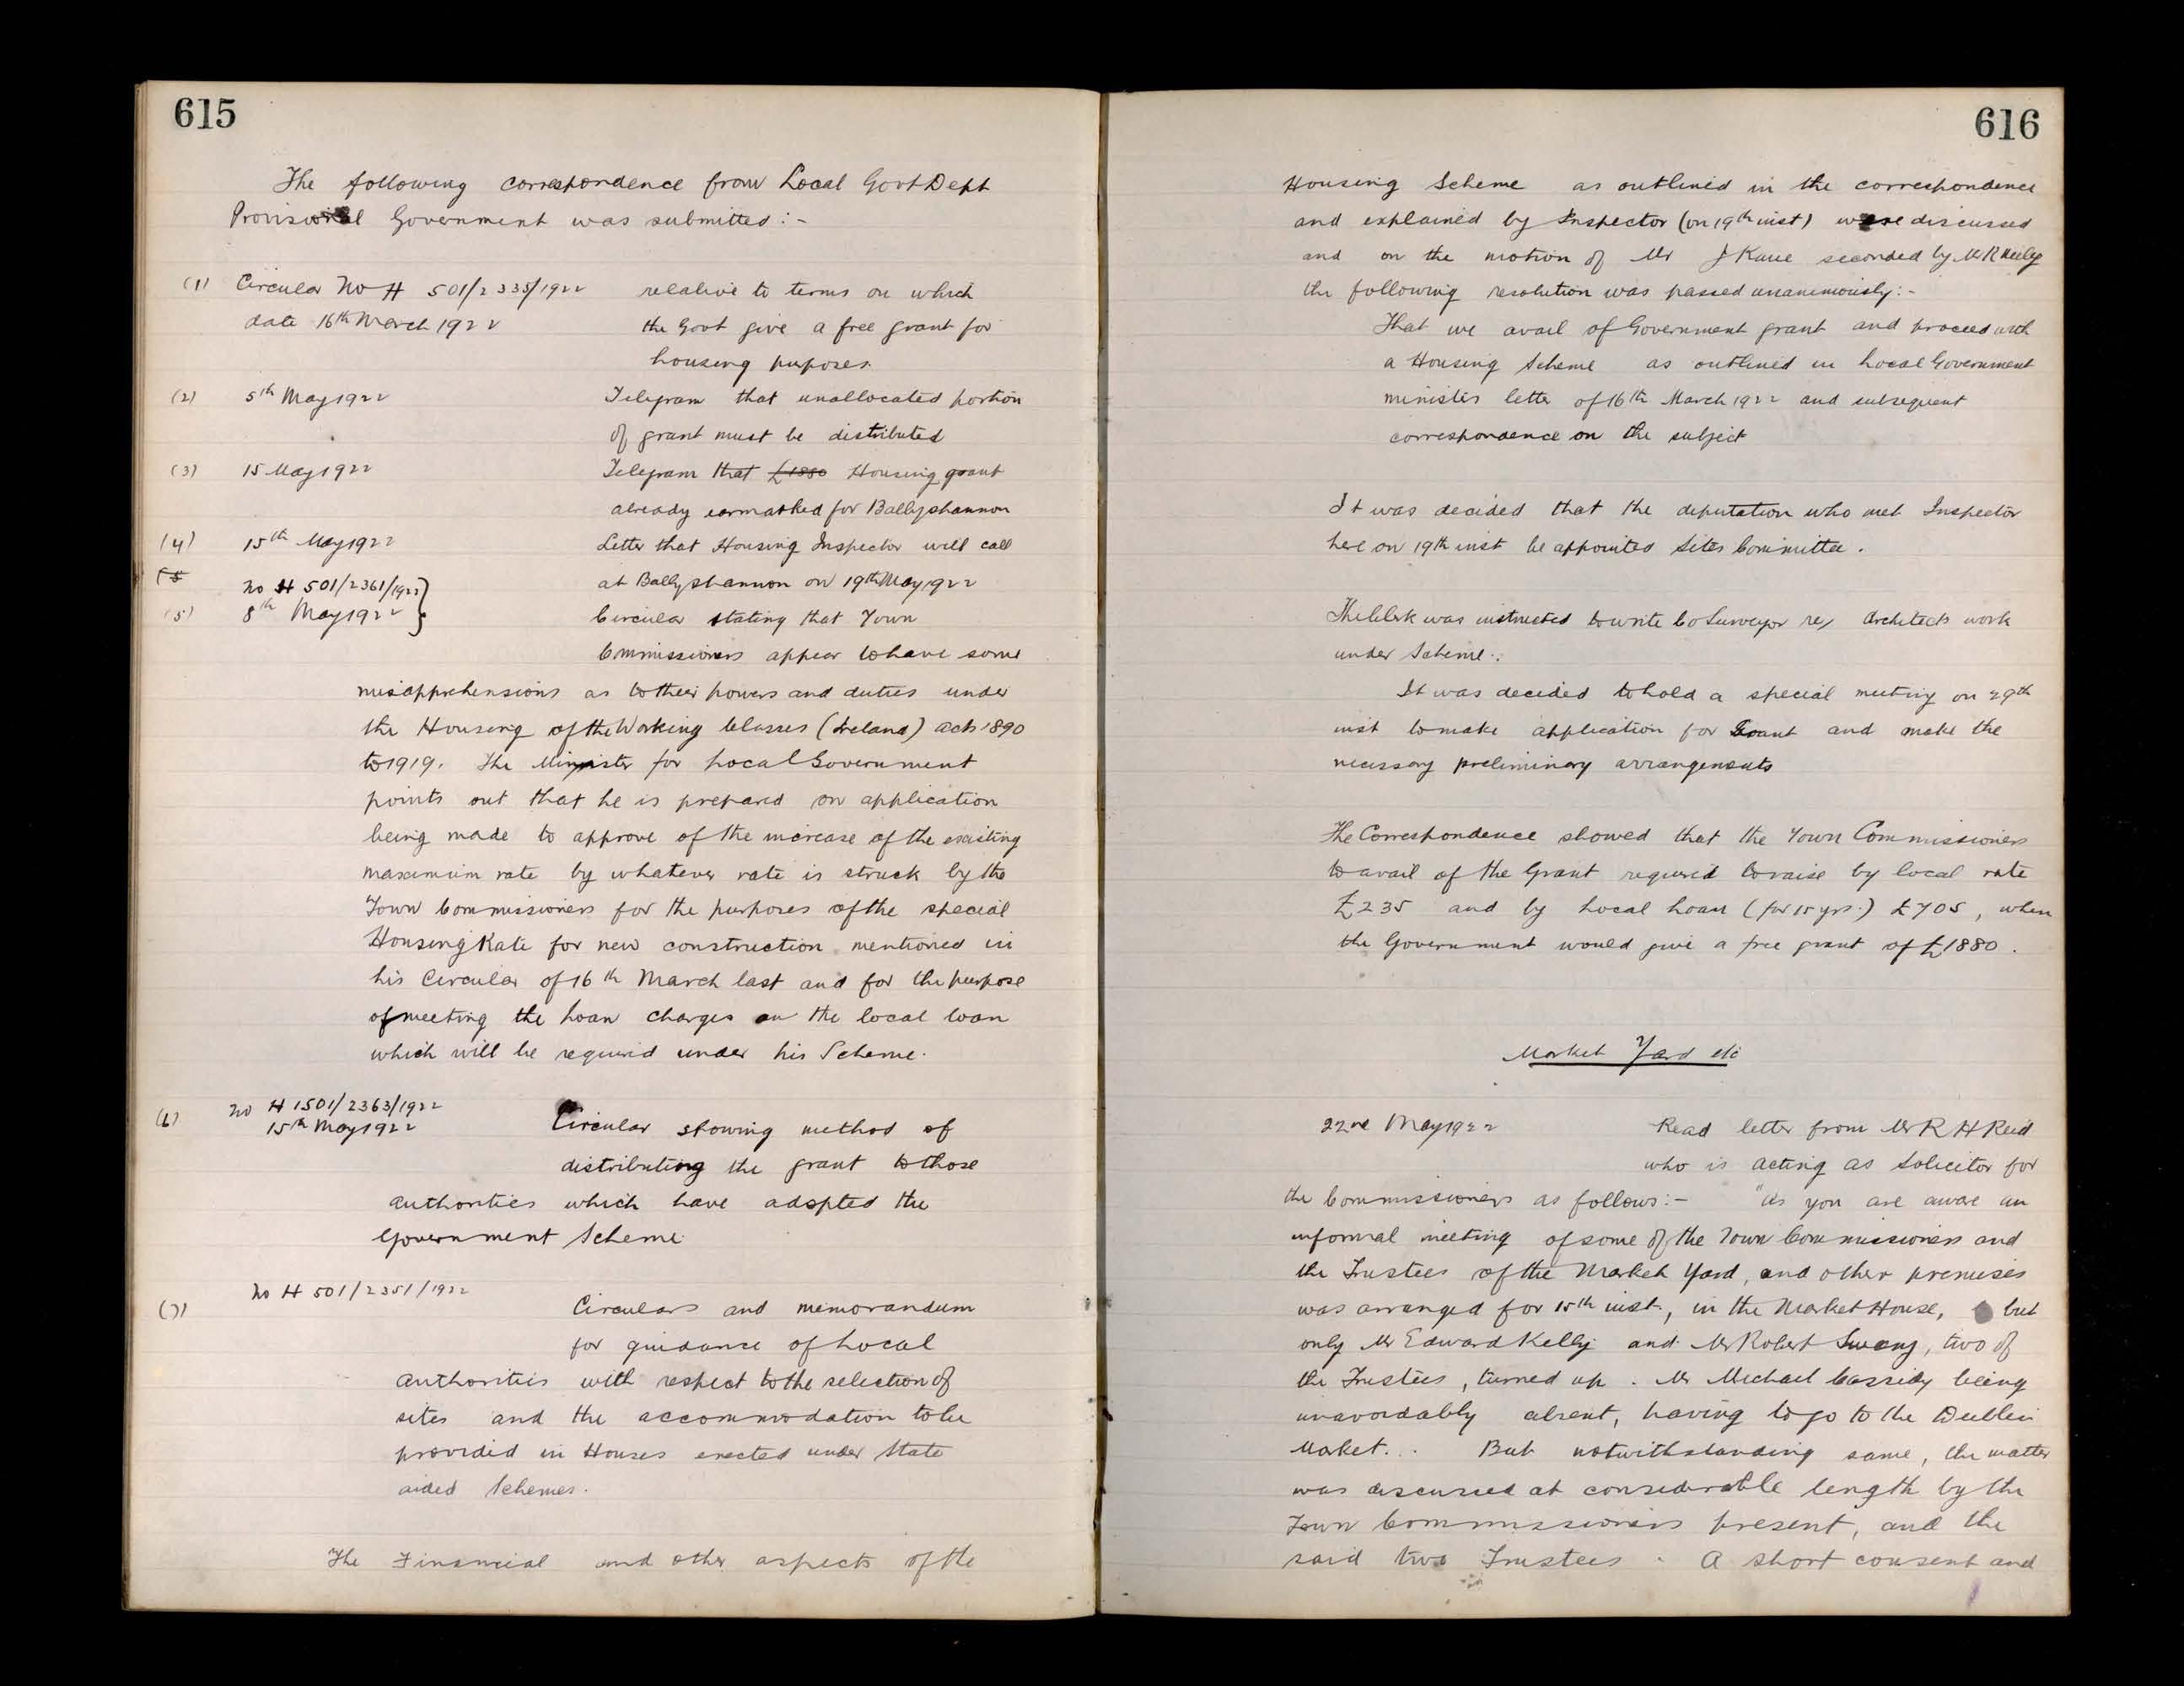 615
The following correspondence from Local Govt Dept
Provisional Government was submitted:-
(1) Circular No H 501/2335/1922 relative to terms on which
date 16th March 1922 the Govt give a free grant for
housing purposes.
(2) 5th May 1922 Telegram that unallocated portion
of grant must be distributed
(3) 15 May 1922 Telegram that £1880 Housing grant
already earmarked for Ballyshannon
(4) 15th May 1922 Letter that Housing Inspector will call
(5 at Ballyshannon on 19th May 1922
No H 501/2361/1922 }
(5) 8th May 1922 } Circular stating that Town
Commissioners appear to have some
misapprehensions as to their powers and duties under
the Housing of the Working Classes (Ireland) acts 1890
to 1919. The Minister for Local Government
points out that he is prepared on application
being made to approve of the increase of the existing
maximum rate by whatever rate is struck by the
Town Commissioners for the purposes of the special
Housing Rate for new construction mentioned in
his Circular of 16th March last and for the purpose
of meeting the Loan charges on the local loan
which will be required under his Scheme.
(6) No H 1501/2363/1922
15th May 1922 Circular showing method of
distributing the grant to those
authorities which have adopted the
Government Scheme
No H 501/2351/1922
(7) Circulars and memorandum
for guidance of Local
Authorities with respect to the selection of
sites and the accommodation to be
provided in Houses erected under State
aided Schemes.
The Financial and other aspects of the
616
Housing Scheme as outlined in the correspondence
and explained by Inspector (on 19th inst) were discussed
and on the motion of Mr J Kane seconded by Mr R Neely
the following resolution was passed unanimously:-
That we avail of Government grant and proceed with
a Housing Scheme as outlined in Local Government
ministers letter of 16th March 1922 and subsequent
correspondence on the subject
It was decided that the deputation who met Inspector
here on 19th inst be appointed Sites Committee.
The Clerk was instructed to write Co Surveyor re, Architects work
under Scheme.
It was decided to hold a special meeting on 29th
inst to make application for Grant and make the
necessary preliminary arrangements
The Correspondence showed that the Town Commissioners
to avail of the Grant required to raise by local rate
£235 and by Local Loan (for 15 yrs.) £705, when
the Government would give a free grant of £1880.
Market Yard etc
22nd May 1922 Read letter from Mr R H Reid
who is acting as Solicitor for
the Commissioners as follows:- "As you are aware an
informal meeting of some of the Town Commissioners and
the Trustees of the Market Yard, and other premises
was arranged for 15th inst., in the Market House, but
only Mr Edward Kelly and Mr Robert Sweny, two of
the Trustees, turned up. Mr Michael Cassidy being
unavoidably absent, having to go to the Dublin
Market. . But notwithstanding same, the matter
was discussed at considerable length by the
Town Commissioners present, and the
said two Trustees. A short consent and